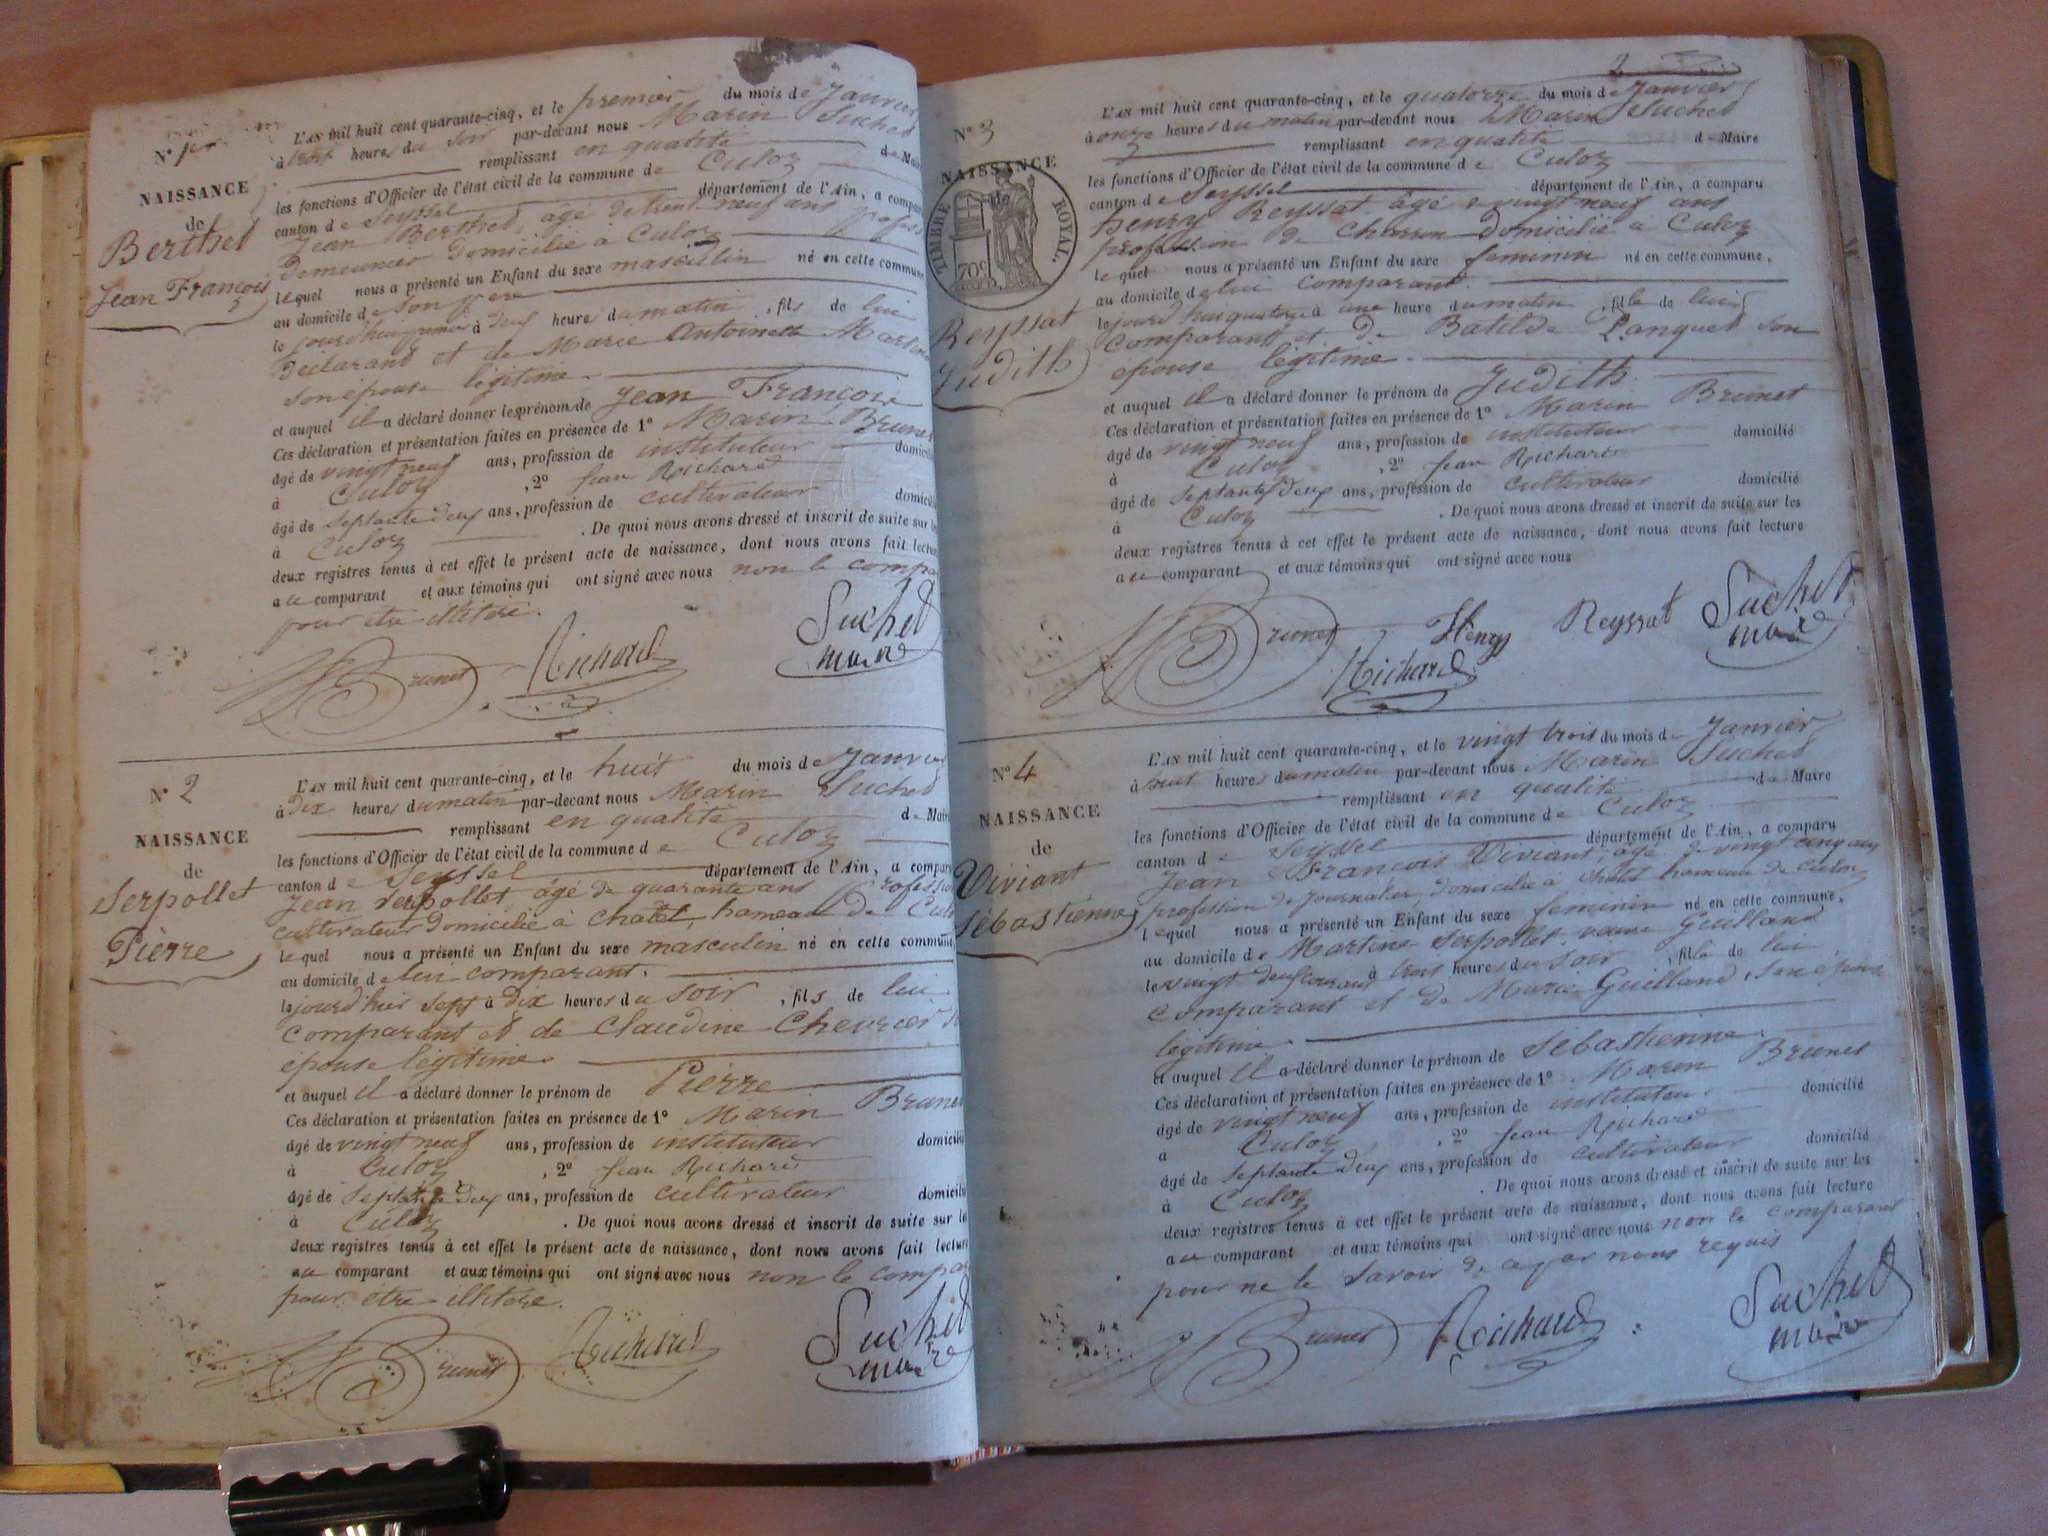 N° 1er
NAISSANCE
de
Berthet
Jean François
L'AN mil huit cent quarante-cinq, et le premier du mois de Janvier
à trois heures du soir par-devant nous Marin Suchet
remplissant en qualité de Maire
les fonctions d'Officier de l'état civil de la commune de Culoz
canton de Seyssel département de l'Ain, a comparu
Jean Berthet, âgé de trent neuf ans profess
Demeunier domicilié à Culoz
lequel nous a présenté un Enfant du sexe masculin né en cette commune
au domicile de son père
le jourd'hui premier à deux heures du matin, fils de lui
Déclarant et de Marie Antoinette
son épouse légitime.
et auquel il a déclaré donner les prénom de Jean François
Ces déclaration et présentation faites en présence de 1° Marin Brunet
âgé de vingt neuf ans, profession de instituteur domicilié
à Culoz, 2° Jean Richard
âgé de septante deux ans, profession de cultivateur domicilié
à Culoz. De quoi nous avons dressé et inscrit de suite sur les
deux registres tenus à cet effet le présent acte de naissance, dont nous avons fait lecture
au comparant et aux témoins qui ont signé avec nous non le compa
pour être illitéré.
Brunet Richard Suchet
maire
N° 2
NAISSANCE
de
Serpollet
Pierre
L'AN mil huit cent quarante-cinq, et le huit du mois de Janvier
à Dix heures du matin par-devant nous Marin Suchet
remplissant en qualité de Maire
les fonctions d'Officier de l'état civil de la commune de Culoz
canton de Seyssel département de l'Ain, a comparu
Jean Serpollet âgé de quarante ans Profession
cultivateur domicilié à Chatel, hameau de Culoz
lequel nous a présenté un Enfant du sexe masculin né en cette commune
au domicile de lui comparant.
le jourd'hier sept à Dix heures du soir, fils de lui
comparant et de Claudine Chevrier
épouse légitime.
et auquel il a déclaré donner le prénom de Pierre
Ces déclaration et présentation faites en présence de 1° Marin Brunet
âgé de vingt neuf ans, profession de instituteur domicilié
à Culoz, 2° Jean Richard
âgé de septante deux ans, profession de cultivateur domicilié
à Culoz. De quoi nous avons dressé et inscrit de suite sur les
deux registres tenus à cet effet le présent acte de naissance, dont nous avons fait lecture
au comparant et aux témoins qui ont signé avec nous non le compa
pour être illitéré.
Brunet Richard Suchet
maire
2
N° 3
NAISSANCE
de
TIMBRE ROYAL
70c
Reyssat
Judith
L'AN mil huit cent quarante-cinq, et le quatorze du mois de Janvier
à onze heures du matin par-devant nous Marin Suchet
remplissant en qualité de Maire
les fonctions d'Officier de l'état civil de la commune de Culoz
canton de Seyssel département de l'Ain, a comparu
henry Reyssat âgé de vingt neuf ans
profession de Charron domicilié à Culoz
lequel nous a présenté un Enfant du sexe feminin né en cette commune,
au domicile de lui comparant.
le jourd'hui quatorze à une heure du matin, fille de lui
comparant et de Batilde Lanquet son
épouse légitime.
et auquel il a déclaré donner le prénom de Judith.
Ces déclaration et présentation faites en présence de 1° Marin Brunet
âgé de vingt neuf ans, profession de instituteur domicilié
à Culoz, 2° Jean Richard
âgé de septante deux ans, profession de cultivateur domicilié
à Culoz. De quoi nous avons dressé et inscrit de suite sur les
deux registres tenus à cet effet le présent acte de naissance, dont nous avons fait lecture
au comparant et aux témoins qui ont signé avec nous
Brunet Henry Reyssat Suchet
Richard maire
N° 4
NAISSANCE
de
Viviant
Sébastienne
L'AN mil huit cent quarante-cinq, et le vingt trois du mois de Janvier
à huit heures du matin par-devant nous Marin Suchet
remplissant en qualité de Maire
les fonctions d'Officier de l'état civil de la commune de Culoz
canton de Seyssel département de l'Ain, a comparu
Jean François Viviant, âgé de vingt cinq ans
profession de Journalier, domicilié à Chatel hameau de Culoz
lequel nous a présenté un Enfant du sexe feminin né en cette commune,
au domicile de Martine Serpollet veuve Guilland
le vingt deux courant à trois heures du soir, fille de lui
comparant et de Marie Guilland, son épouse
légitime.
et auquel il a déclaré donner le prénom de Sebastienne.
Ces déclaration et présentation faites en présence de 1° Marin Brunet
âgé de vingt neuf ans, profession de instituteur domicilié
à Culoz, 2° Jean Richard
âgé de septante deux ans, profession de cultivateur domicilié
à Culoz. De quoi nous avons dressé et inscrit de suite sur les
deux registres tenus à cet effet le présent acte de naissance, dont nous avons fait lecture
au comparant et aux témoins qui ont signé avec nous non le comparant
pour ne le savoir de ce par nous requis
Brunet Richard Suchet
maire